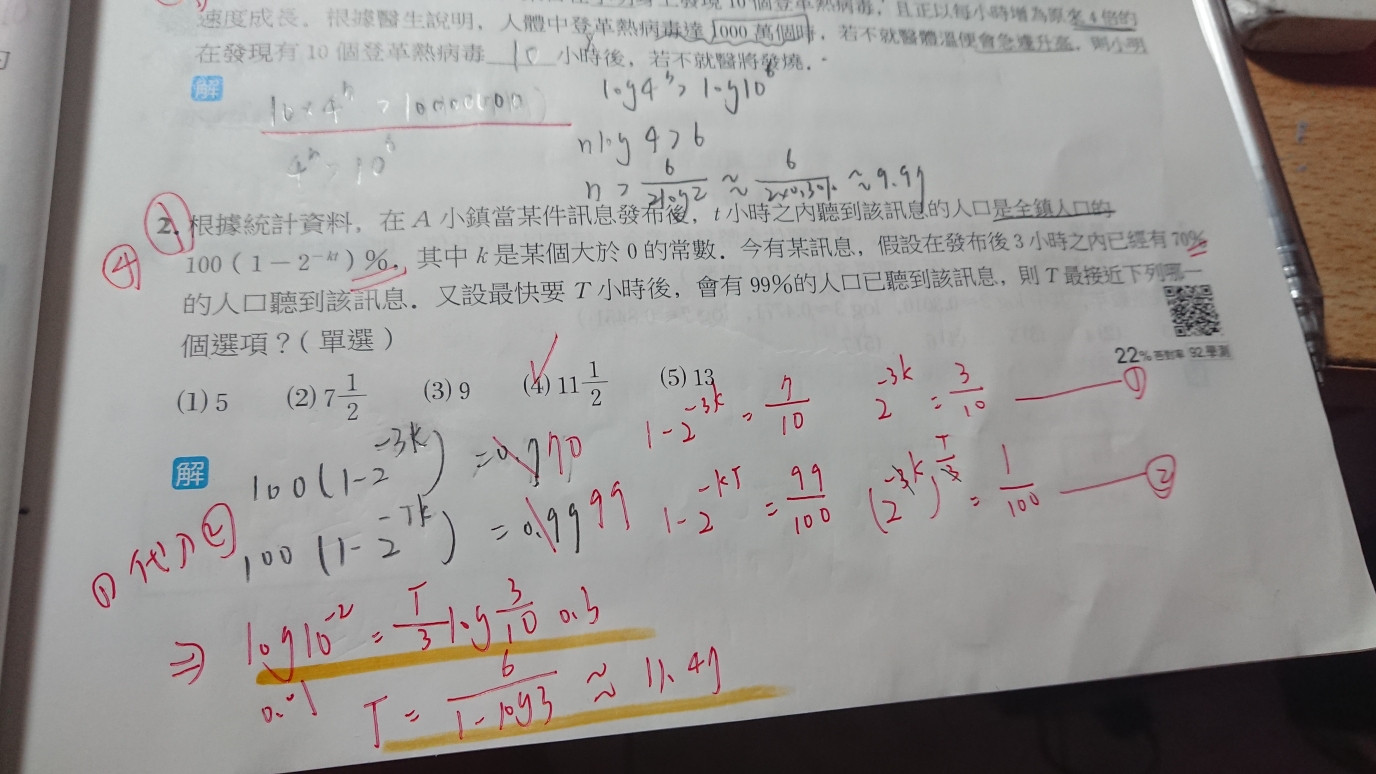 發現10個登革熱病毒，且正以每小時增為原來4倍的
速度成長．根據醫生說明，人體中登革熱病毒達1000萬個時，若不就醫體溫便會急速升高，則小明
在發現有10個登革熱病毒 10 小時後，若不就醫將發燒．
解
10×4ⁿ > 10000000
log4ⁿ > log10⁶
4ⁿ > 10⁶
nlog4 > 6
n > 6/2log2 ≈ 6/2×0.301 ≈ 9.97
④
2. 根據統計資料，在A小鎮當某件訊息發布後，t小時之內聽到該訊息的人口是全鎮人口的
100（1－2^(-kt)）%．其中k是某個大於0的常數．今有某訊息，假設在發布後3小時之內已經有70%
的人口聽到該訊息．又設最快要T小時後，會有99%的人口已聽到該訊息，則T最接近下列哪一
個選項？（單選）
22% 答對率 92學測
(1) 5 (2) 7 1/2 (3) 9 (4) 11 1/2 (5) 13
解
100(1-2^(-3k)) = 0.7 70
1-2^(-3k) = 7/10
2^(-3k) = 3/10 ——①
100(1-2^(-Tk)) = 0.99 99
1-2^(-kT) = 99/100
(2^(-3k))^(T/3) = 1/100 ——②
①代入②
⇒ log10^(-2) = T/3 log 3/10 0.3
0.01
T = 6/(1-log3) ≈ 11.49